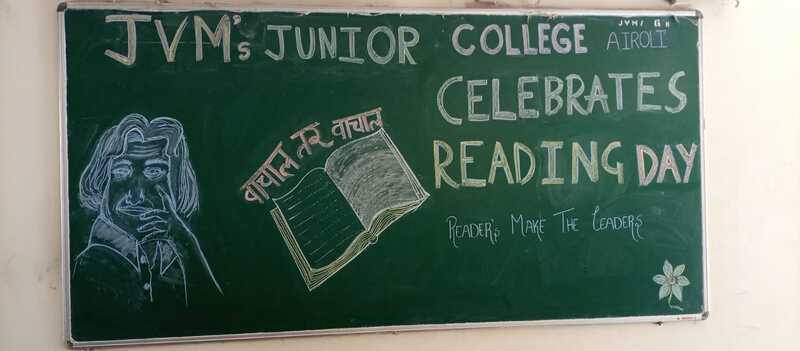 JVM's JUNIOR COLLEGE AIROLI
CELEBRATES
READING DAY
वाचाल तर वाचाल
READER's MAKE THE LEADERS